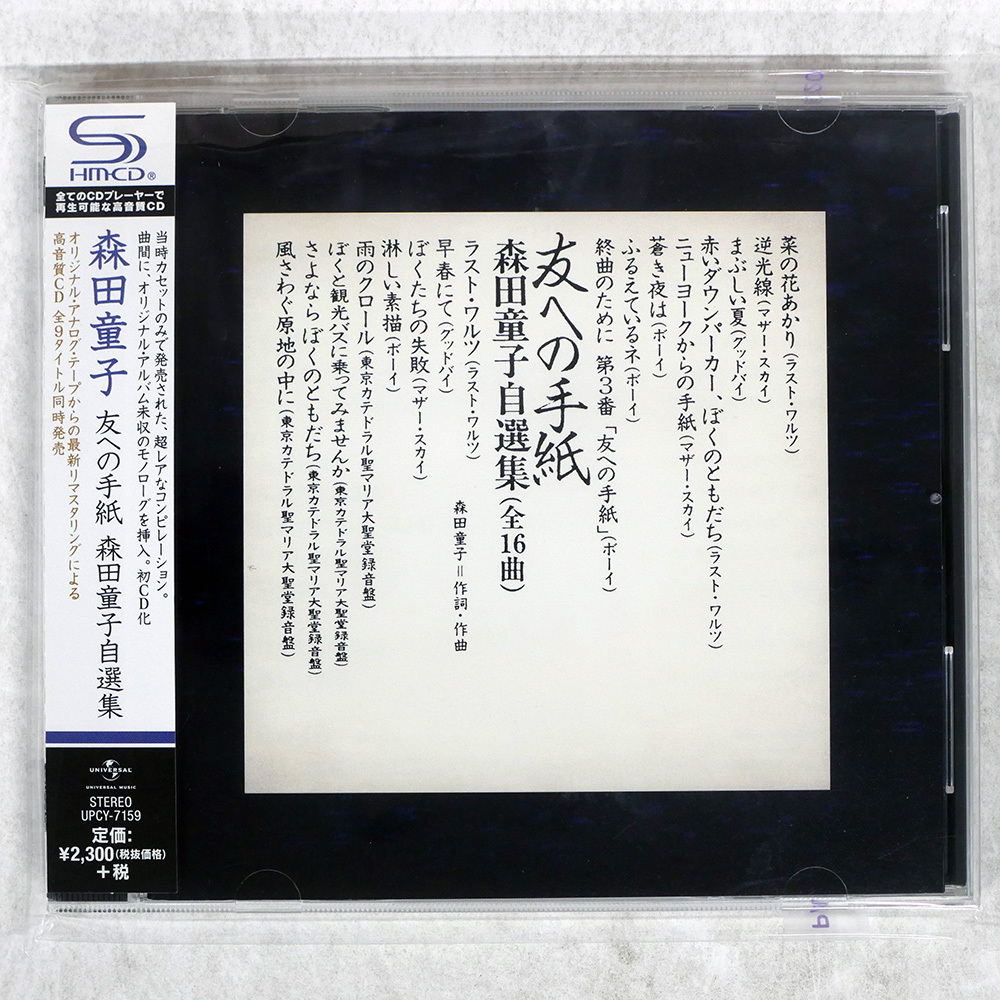 SHM-CD®
全てのCDプレーヤーで
再生可能な高音質CD
当時カセットのみで発売された、超レアなコンピレーション。
曲間に、オリジナル・アルバム未収のモノローグを挿入。初CD化
森田童子 友への手紙 森田童子自選集
オリジナル・アナログ・テープからの最新リマスタリングによる
高音質CD 全9タイトル同時発売
UNIVERSAL
UNIVERSAL MUSIC
STEREO
UPCY-7159
定価:
¥2,300(税抜価格)
+税
菜の花あかり(ラスト・ワルツ)
逆光線(マザー・スカイ)
まぶしい夏(グッドバイ)
赤いダウンパーカー、ぼくのともだち(ラスト・ワルツ)
ニューヨークからの手紙(マザー・スカイ)
蒼き夜は(ボーイ)
ふるえているネ(ボーイ)
終曲のために 第3番「友への手紙」(ボーイ)
友への手紙
森田童子自選集(全16曲)
森田童子=作詞・作曲
ラスト・ワルツ(ラスト・ワルツ)
早春にて(グッドバイ)
ぼくたちの失敗(マザー・スカイ)
淋しい素描(ボーイ)
雨のクロール(東京カテドラル聖マリア大聖堂録音盤)
ぼくと観光バスに乗ってみませんか(東京カテドラル聖マリア大聖堂録音盤)
さよなら ぼくのともだち(東京カテドラル聖マリア大聖堂録音盤)
風さわぐ原地の中に(東京カテドラル聖マリア大聖堂録音盤)